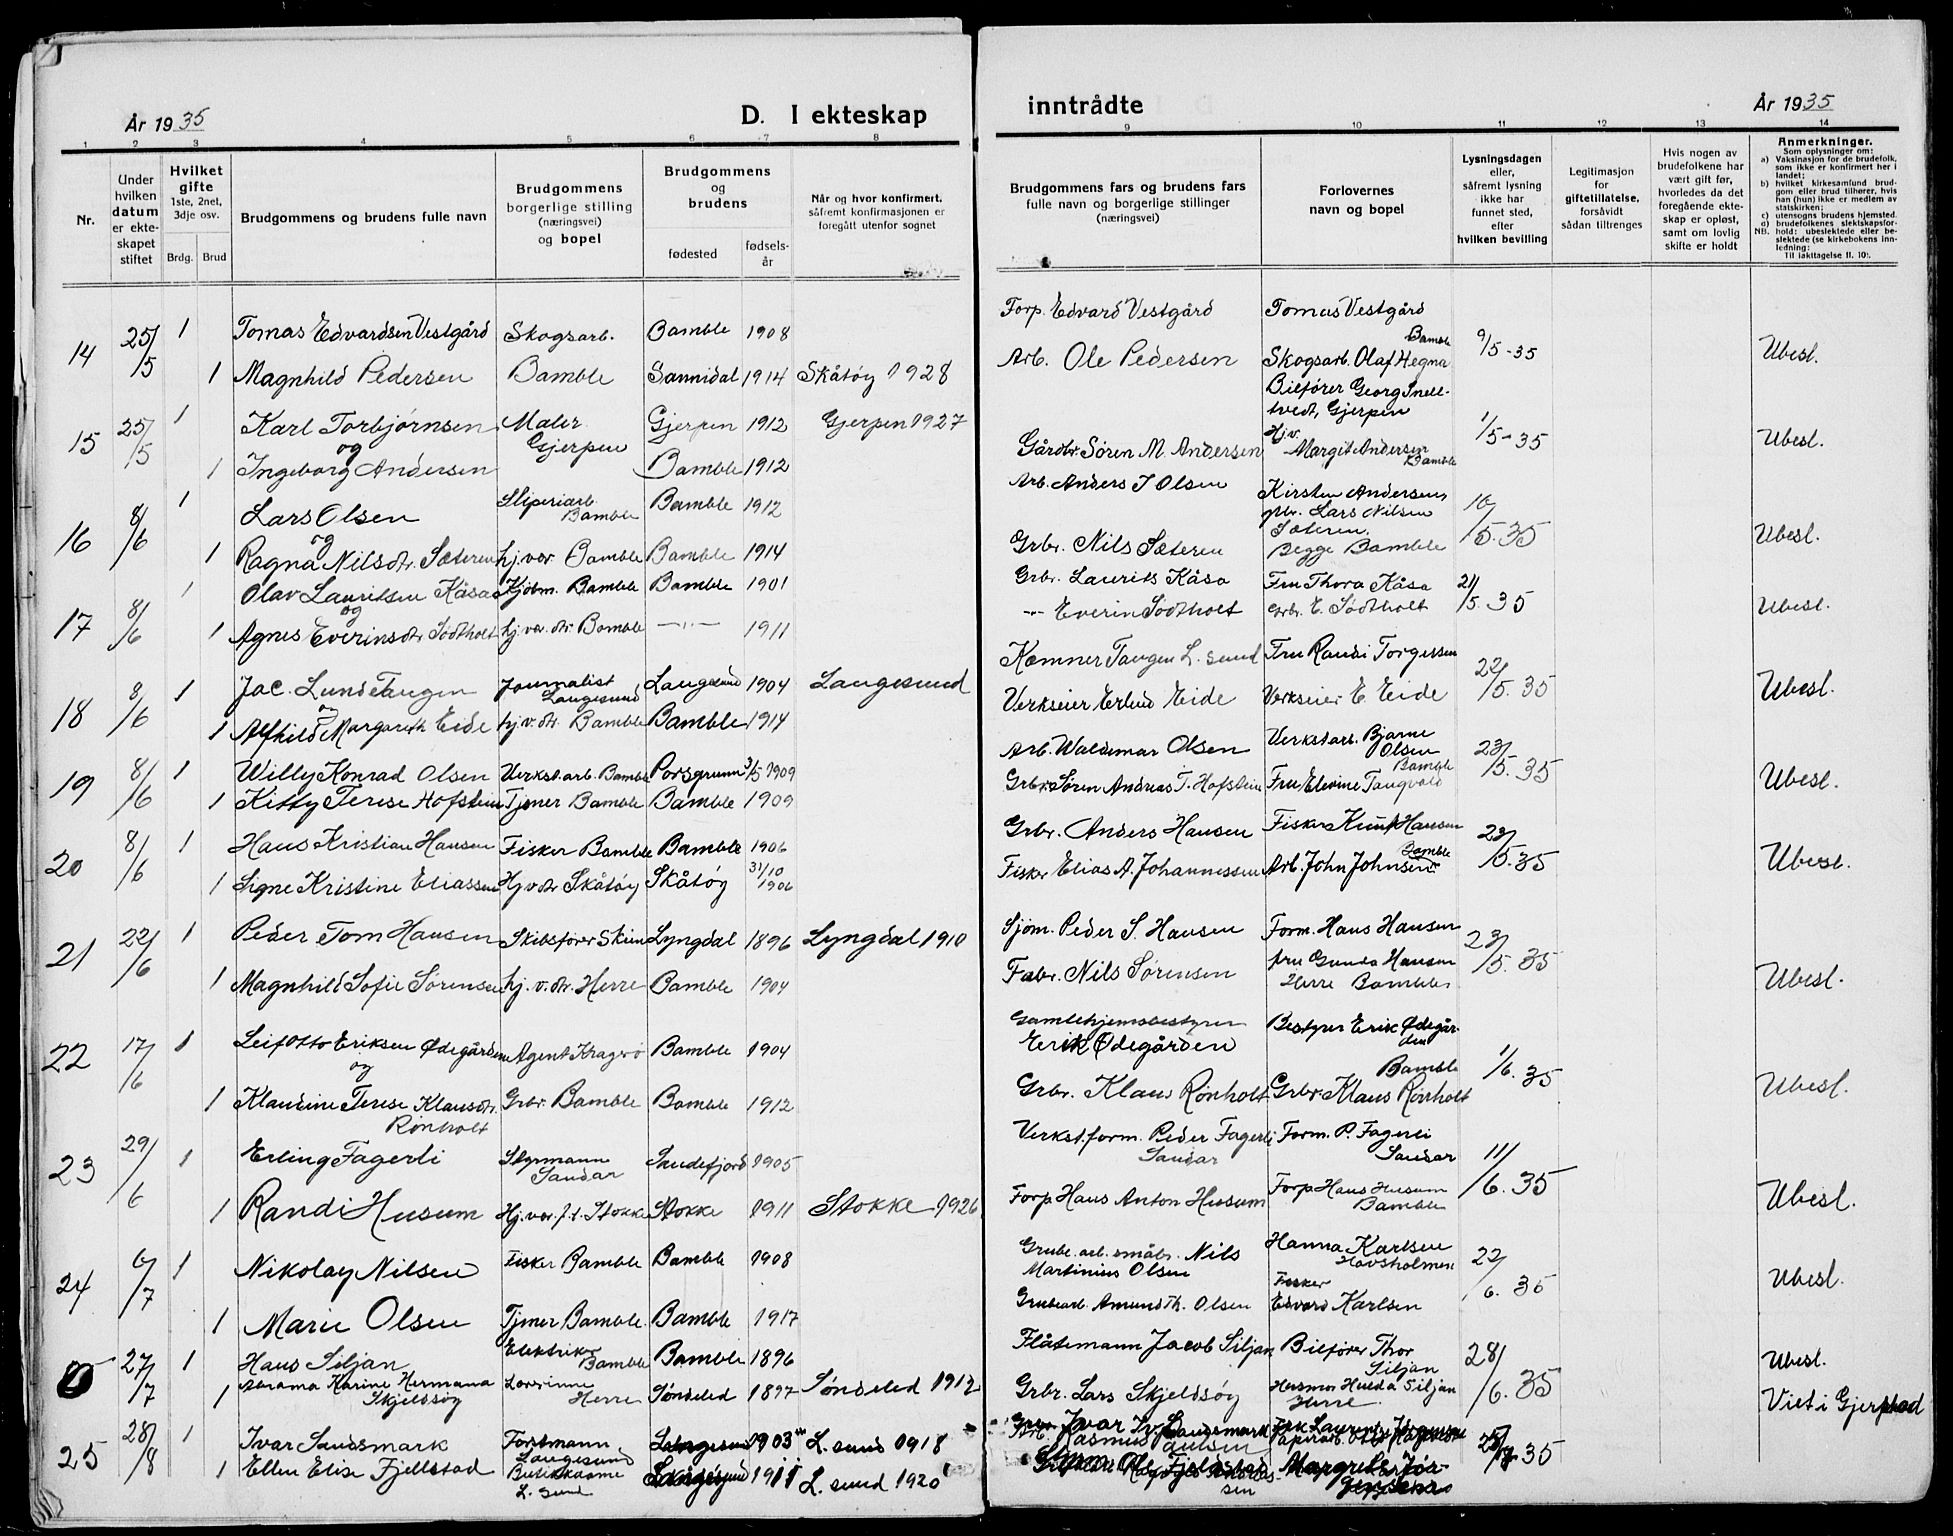 År 1935
D. I ekteskap
1 2 3 4 5 6 7 8
Nr.
Under hvilken datum er ekteskapet stiftet
Hvilket gifte 1ste, 2net, 3dje osv.
Brdg. Brud
Brudgommens og brudens fulle navn
Brudgommens borgerlige stilling (næringsvei) og bopel
Brudgommens og brudens
fødested
fødsels-år
Når og hvor konfirmert, såfremt konfirmasjonen er foregått utenfor sognet
14 25/5 1 Tomas Edvardsen Vestgård Skogsarb. Bamble 1908
1 Magnhild Pedersen Bamble Sannidal 1914 Skåtøy 1928
15 25/5 1 Karl Torbjørnsen Maler Gjerpen 1912 Gjerpen 1927
og Gjerpen
1 Ingeborg Andersen Bamble 1912
16 8/6 1 Lars Olsen Sliperiarb. Bamble Bamble 1912
og
1 Ragna Nilsdtr. Sæteren hj.vær. Bamble Bamble 1914
17 8/6 1 Olav Lauritsen Kåsa Kjøbm. Bamble Bamble 1901
og
1 Agnes Everinsdtr. Sødtholt hj.vær.dtr. Bamble —"— 1911
18 8/6 1 Jac. Lund Tangen Journalist Langesund Langesund 1904 Langesund
og
1 Alfhild Margareth Eide hj.v.dtr. Bamble Bamble 1914
19 8/6 1 Willy Konrad Olsen Verkst.arb. Bamble Porsgrunn 3/5 1909
1 Kitty Terese Hofstein Tjener Bamble Bamble 1909
20 8/6 1 Hans Kristian Hansen Fisker Bamble Bamble 1906
1 Signe Kristine Eliassen Hjvdtr Skåtøy Skåtøy 31/10 1906
21 22/6 1 Peder Tom Hansen Skibsfører Skien Lyngdal 1896 Lyngdal 1910
1 Magnhild Sofie Sørensen hj.v.dtr. Herre Bamble 1904
22 17/6 1 Leif Otto Eriksen Ødegården Agent Kragerø Bamble 1904
og
1 Klaudine Terese Klausdtr. Rønholt Grbr. Bamble Bamble 1912
23 29/6 1 Erling Fagerli Styrmann Sandar Sandefjord 1905
1 Randi Husum Hj.vær. f.t. Stokke Stokke 1911 Stokke 1926
24 6/7 1 Nikolay Nilsen Fisker Bamble Bamble 1908
1 Marie Olsen Tjener Bamble Bamble 1917
27/7 1 Hans Siljan Elektriker Bamble Bamble 1896
1 Karine Hermana Skjeldsøy Lærerinne Herre Søndeled 1897 Søndeled 1912
25 28/8 1 Ivar Sandsmark Forstmann Langesund 1903 L. sund 1918
1 Ellen Elise Fjellstad Butikkdame L. sund 1911 L. sund 1920
inntrådte
År 1935
9 10 11 12 13 14
Brudgommens fars og brudens fars fulle navn og borgerlige stillinger (næringsvei)
Forlovernes navn og bopel
Lysningsdagen eller, såfremt lysning ikke har funnet sted, efter hvilken bevilling
Legitimasjon for giftetillatelse, forsåvidt sådan tiltrenges
Hvis nogen av brudefolkene har vært gift før, hvorledes da det foregående ekteskap er opløst, samt om lovlig skifte er holdt
Anmerkninger.
Som oplysninger om:
a) Vaksinasjon for de brudefolk, som ikke er konfirmert her i landet;
b) hvilket kirkesamfund brudgom eller brud tilhører, hvis han (hun) ikke er medlem av statskirken;
c) utensogns brudens hjemsted.
d) brudefolkenes slektskapsforhold: ubeslektede eller beslektede (se kirkebokens innledning:
NB. Til iakttagelse II, 10).
Forp. Edvard Vestgård Tomas Vestgård
Bamble 9/5-35 Ubesl.
Arb. Ole Pedersen Skogsarb. Olaf Hegna
Bilfører Georg Snell-
tvedt, Gjerpen 1/5-35 Ubesl.
Gårdbr. Søren M. Andersen Hjv. Margit Andersen Bamble
Arb. Anders J Olsen Kirsten Andersen
gbr. Lars Nilsen 10/5.35 Ubesl.
Sæteren
Grbr. Nils Sæteren Begge Bamble
Grbr. Laurits Kåsa Fru Thora Kåsa 21/5.35 Ubesl.
-"- Everin Sødtholt Grbr. E. Sødtholt
Kæmner Tangen L. sund Fru Randi Torgersen 22/5.35 Ubesl.
Verkseier Erlend Eide Verkseier E. Eide
Arb. Waldemar Olsen Verkstarb. Bjarne Olsen Bamble 23/5.35 Ubesl.
Grbr. Søren Andreas T. Hofstein Fru Elevine Tangvald
Grbr. Anders Hansen Fisker Knut Hansen Bamble 23/5.35 Ubesl.
Fisker Elias A. Johannessen Arb. John Johnsen
Sjøm. Peder S. Hansen Form. Hans Hansen 23/5.35 Ubesl.
Fabr. Nils Sørensen fru Gunda Hansen
Herre Bamble
Gamlehjemsbestyrer Bestyrer Erik Ødegår-
Erik Ødegården den
Bamble 1/6.35 Ubesl.
Grbr. Klaus Rønholt Grbr. Klaus Rønholt
Verkst.form. Peder Fagerli Form. P. Fagerli
Sandar Sandar 11/6.35 Ubesl.
Forp Hans Anton Husum Forp Hans Husum
Bamble
Grube.arb. småbr. Nils Hanna Karlsen
Martinius Olsen Havsholmen 22/6.35 Ubesl.
Grubearb. Amund Th. Olsen Fisker Edvard Karlsen
Flåtemann Jacob Siljan Bilfører Thor
Siljan 28/6.35 Ubesl.
Grbr. Lars Skjeldsøy Husmor Hulda Siljan Viet i Gjerstad
Herre
Ivar Sandsmark
35